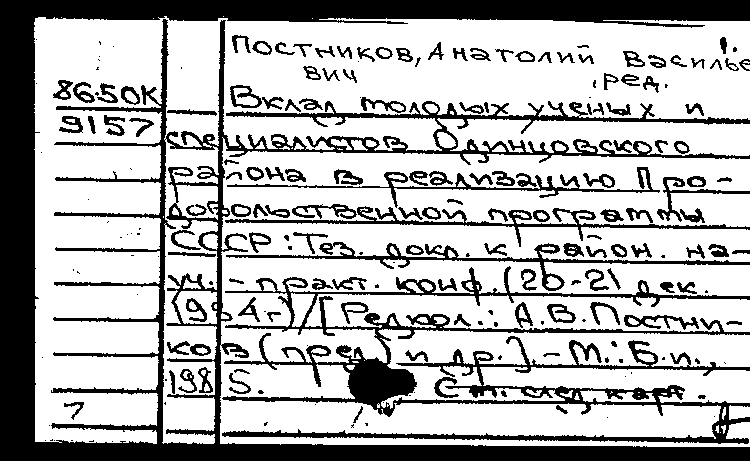 1.
Постников, Анатолий Василье
вич , ред.
86-50К Вклад молодых ученых и
9157 специалистов Одинцовского
района в реализацию Про-
довольственной программы
СССР: Тез. докл. к район. на-
уч.- практ. конф. (20-21 дек.
1984г)/[Редкол.: А.В.Постни-
ков (пред) и др.].- М.: Б.и.,
1985. См. след. карт.
7